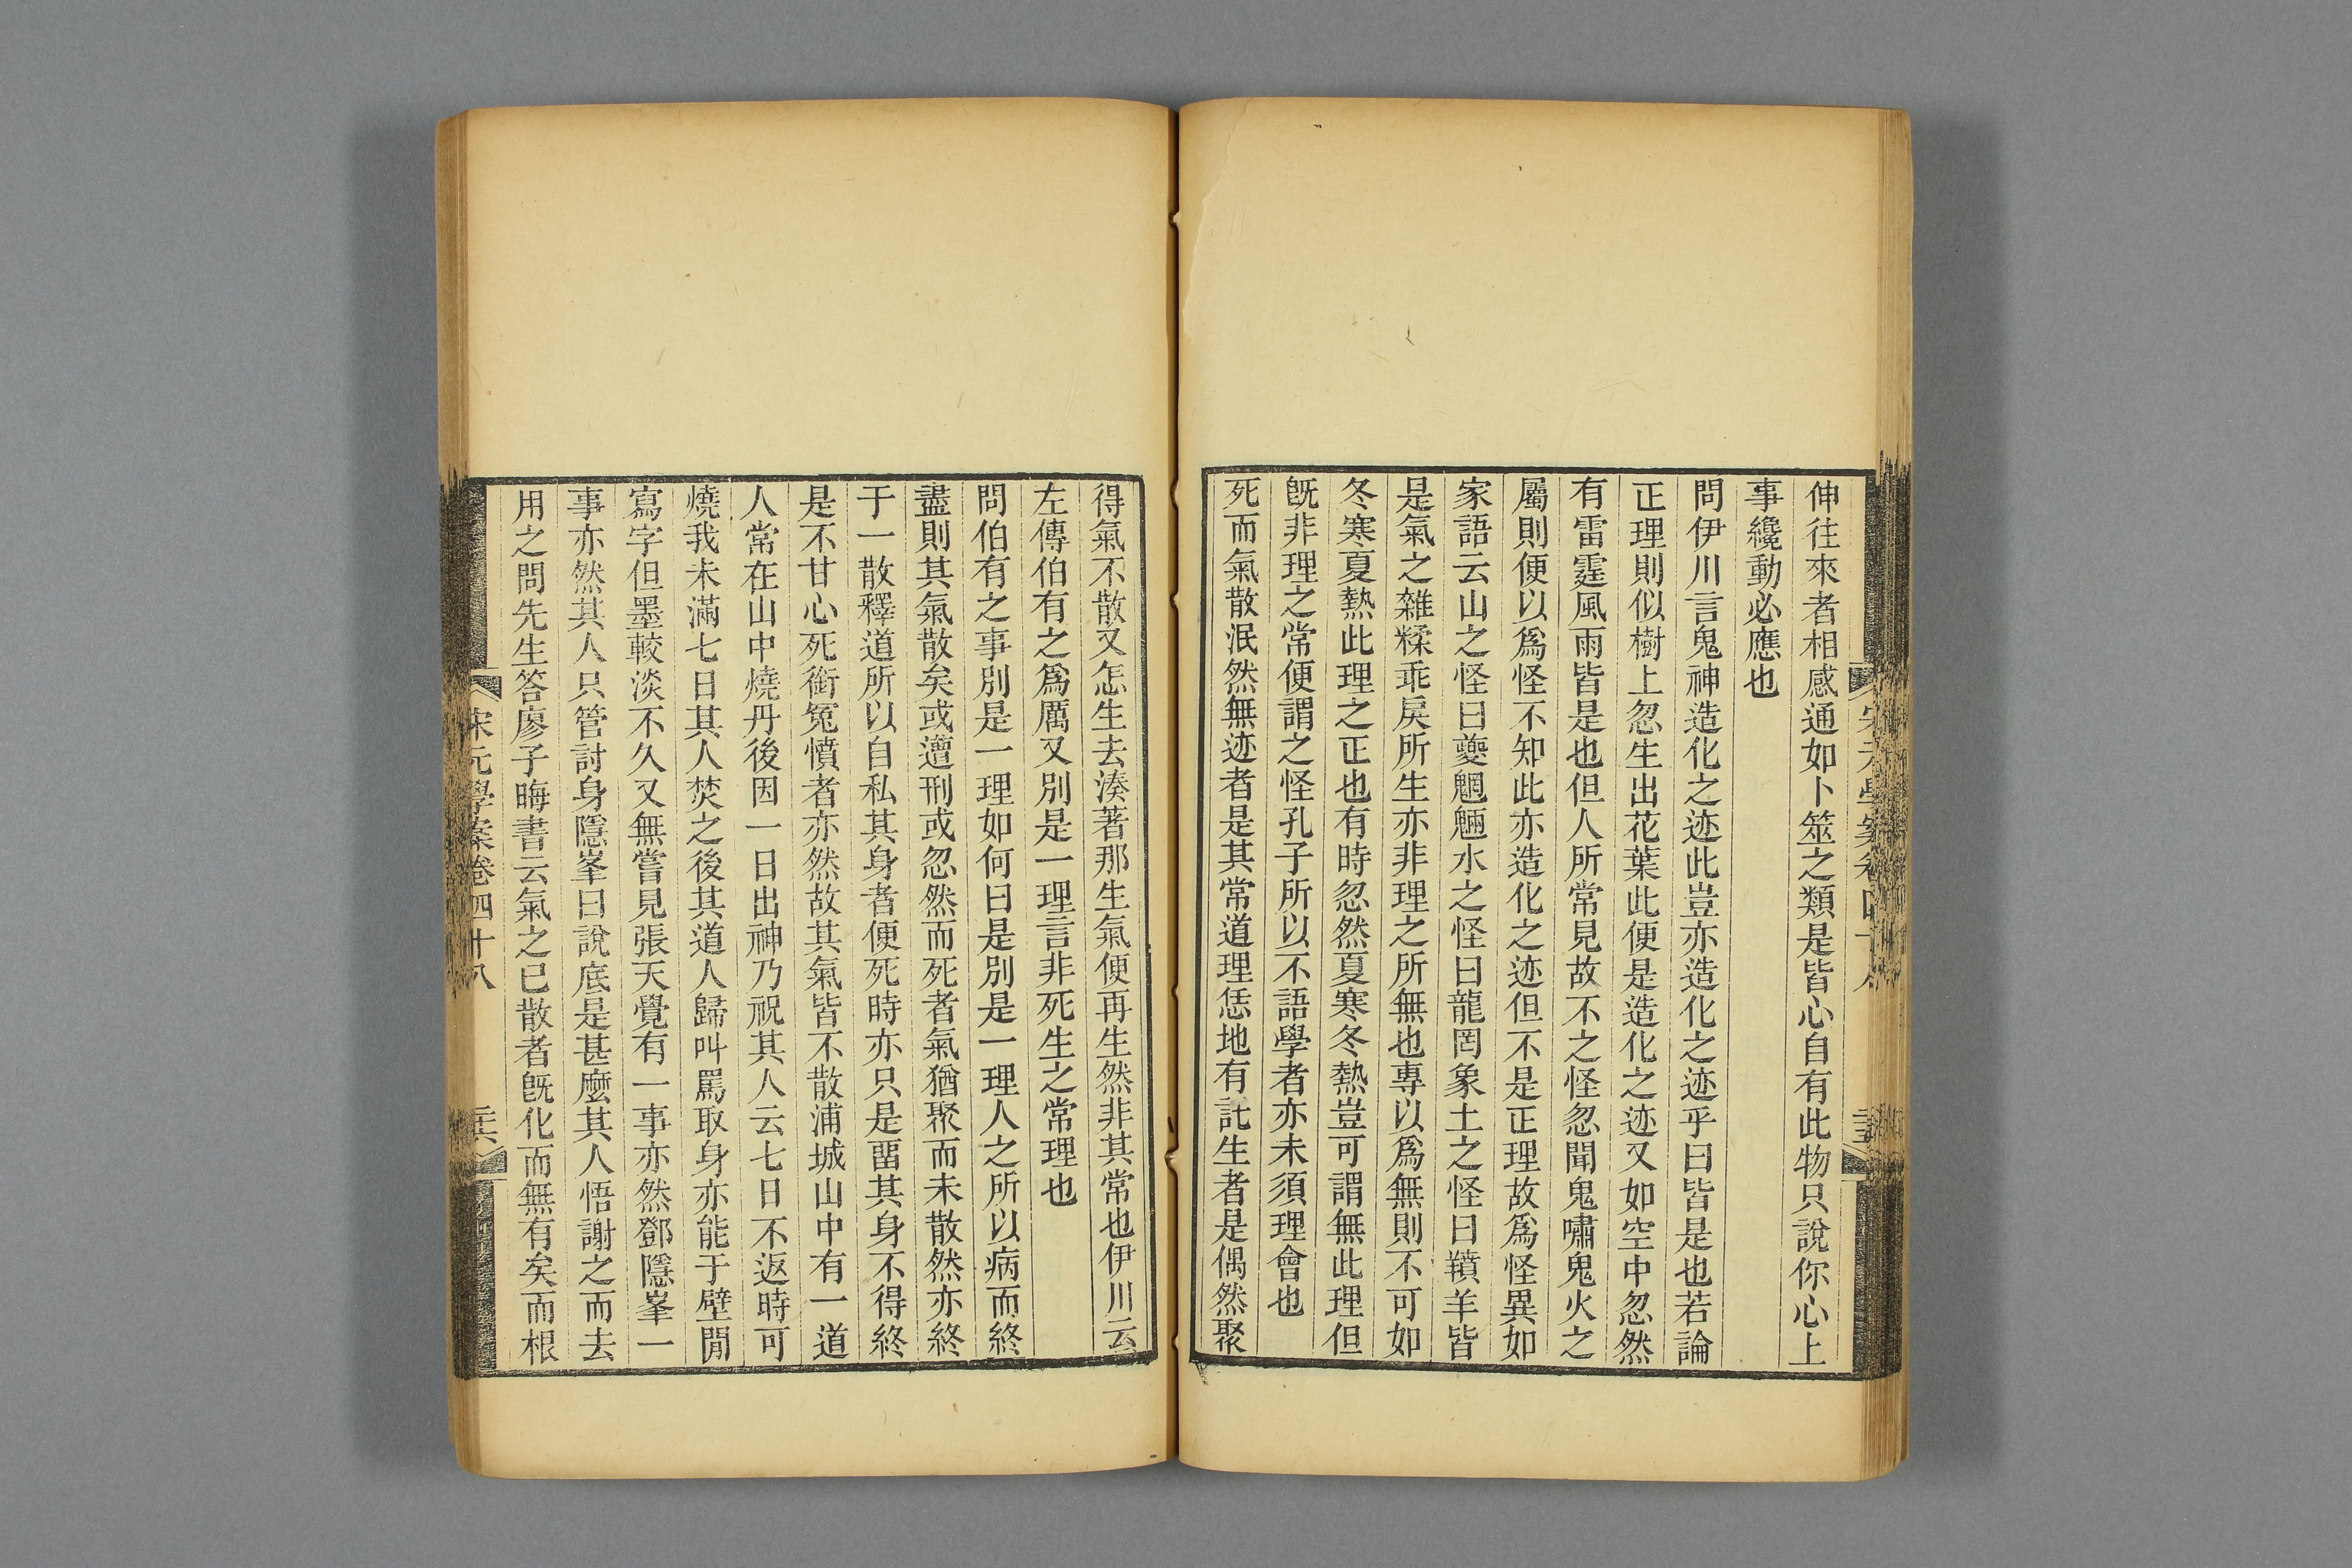 伸往來者相感通如卜筮之類是皆心自有此物只說你心上
事纔動必應也
問伊川言鬼神造化之迹此豈亦造化之迹乎曰皆是也若論
正理則似樹上忽生出花葉此便是造化之迹又如空中忽然
有雷霆風雨皆是也但人所常見故不之怪忽聞鬼嘯鬼火之
屬則便以爲怪不知此亦造化之迹但不是正理故爲怪異如
家語云山之怪曰夔魍魎水之怪曰龍罔象土之怪曰羵羊皆
是氣之雜糅乖戾所生亦非理之所無也專以爲無則不可如
冬寒夏熱此理之正也有時忽然夏寒冬熱豈可謂無此理但
旣非理之常便謂之怪孔子所以不語學者亦未須理會也
死而氣散泯然無迹者是其常道理恁地有託生者是偶然聚
得氣不散又怎生去湊著那生氣便再生然非其常也伊川云
左傳伯有之爲厲又別是一理言非死生之常理也
問伯有之事別是一理如何曰是別是一理人之所以病而終
盡則其氣散矣或遭刑或忽然而死者氣猶聚而未散然亦終
于一散釋道所以自私其身者便死時亦只是畱其身不得終
是不甘心死銜冤憤者亦然故其氣皆不散浦城山中有一道
人常在山中燒丹後因一日出神乃祝其人云七日不返時可
燒我未滿七日其人焚之後其道人歸叫罵取身亦能于壁閒
寫字但墨較淡不久又無嘗見張天覺有一事亦然鄧隱峯一
事亦然其人只管討身隱峯曰說底是甚麼其人悟謝之而去
用之問先生答廖子晦書云氣之已散者旣化而無有矣而根
宋元學案卷四十八